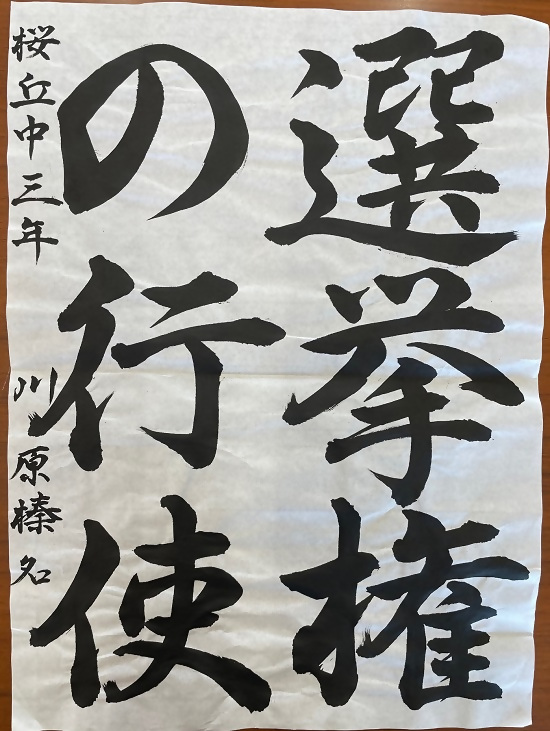 選挙権
の行使
桜丘中三年 川原榛名